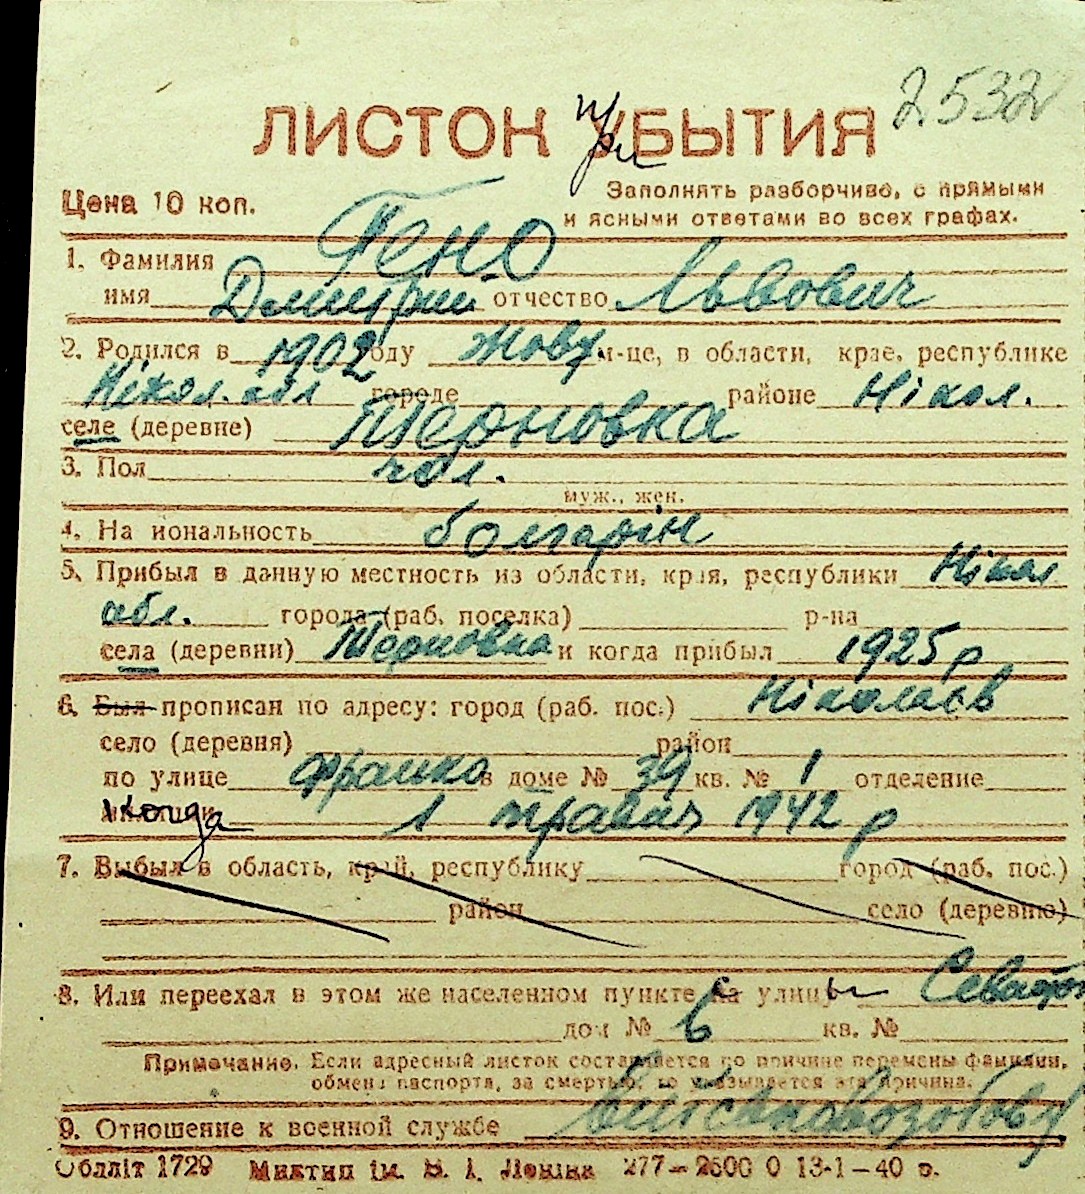 2532
ЛИСТОК УБЫТИЯ
при
Цена 10 коп.
Заполнять разборчиво, с прямыми
и ясными ответами во всех графах.
1. Фамилия Гено
имя Дмитрий отчество Львович
2. Родился в 1902 году Жовт м-це, в области, крае, республике
Нікол. обл городе районе Нікол.
селе (деревне) Терновка
3. Пол чол.
муж., жен.
4. На иональность болгарін
5. Прибыл в данную местность из области, края, республики Нікол
обл. города (раб. поселка) р-на
села (деревни) Терновка и когда прибыл 1925 р
6. Был прописан по адресу: город (раб. пос.) Ніколаєв
село (деревня) район
по улице Франко в доме № 39 кв. № 1 отделение
милиции когда 1 травня 1942 р
7. Выбыл в область, край, республику город (раб. пос.)
район село (деревню)
8. Или переехал в этом же населенном пункте на улицы
дом № 6 кв. №
Примечание. Если адресный листок составляется по причине перемены фамилии,
обмена паспорта, за смертью, то указывается эта причина.
9. Отношение к военной службе
Облліт 1729 Миктип ім. В. І. Леніна 277—2500 0 13-1—40 р.